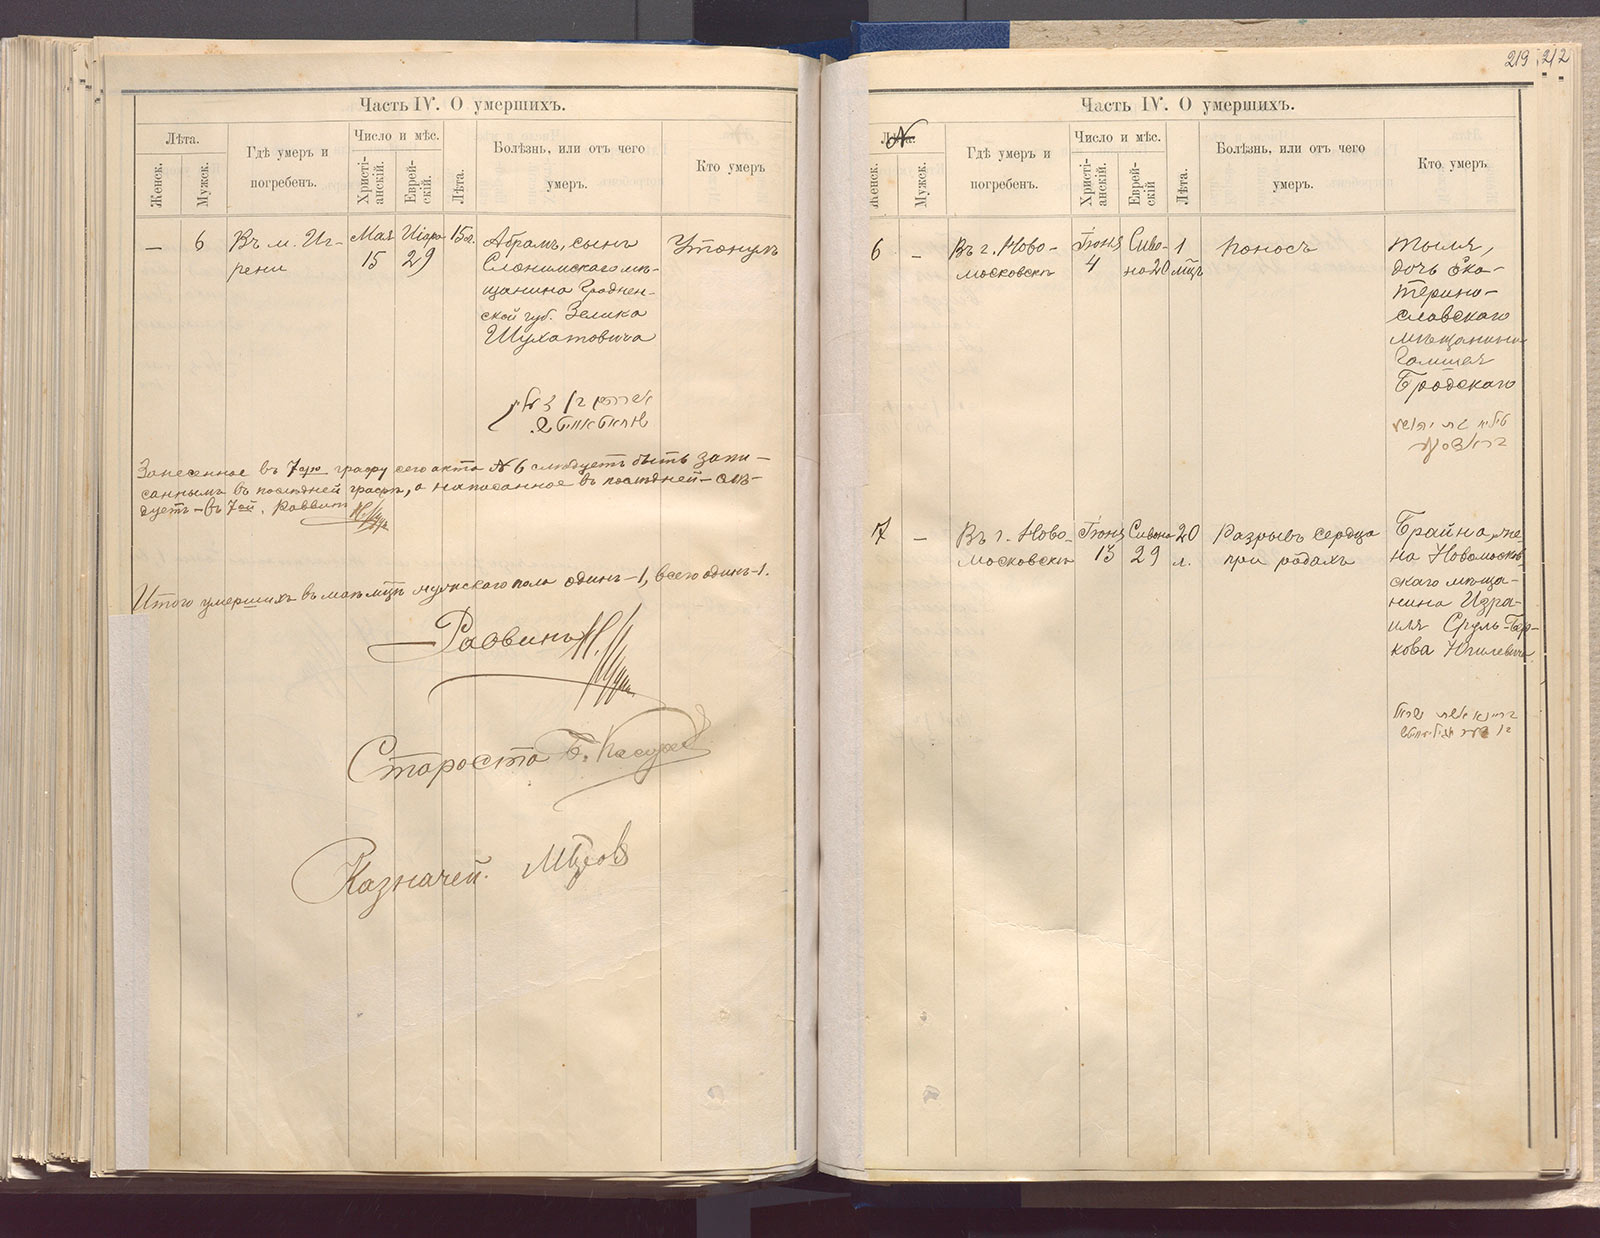 Часть IV. О умершихъ.
Лѣта.
Женск.
Мужск.
Гдѣ умеръ и
погребенъ.
Число и мѣс.
Христі-
анскій.
Еврей-
скій.
Лѣта.
Болѣзнь, или отъ чего
умеръ.
Кто умеръ
— 6
Въ м. Иг-
рени
Мая
15
Иіяра
29
15 л.
Абрамъ, сынъ
Слонимскаго мѣ-
щанина Гроднен-
ской губ. Зелика
Шухатовича
Утонулъ
Занесенное въ 7ую графу сего акта № 6 слѣдуетъ быть запи-
саннымъ въ послѣдней графѣ, а написанное въ послѣдней – слѣ-
дуетъ – въ 7ой. Раввинъ
Итого умершихъ въ маѣ мцѣ мужскаго пола одинъ – 1, всего одинъ – 1.
Раввинъ
Староста
Казначей.
219 212
Часть IV. О умершихъ.
Лѣта.
№
Женск.
Мужск.
Гдѣ умеръ и
погребенъ.
Число и мѣс.
Христі-
анскій.
Еврей-
скій
Лѣта.
Болѣзнь, или отъ чего
умеръ.
Кто умеръ
6 –
Въ г. Ново-
московскѣ
Іюня
4
Сиво-
на 20
1
мцъ
Поносъ
Тыля,
дочь Ека-
терино-
славскаго
мѣщанина
Бродскаго
7 –
Въ г. Ново-
московскѣ
Іюня
13
Сивона
29
20
л.
Разрывъ сердца
при родахъ
Брайна, же-
на Новомосков-
скаго мѣща-
нина Изра-
иля Сруль-Бер-
кова